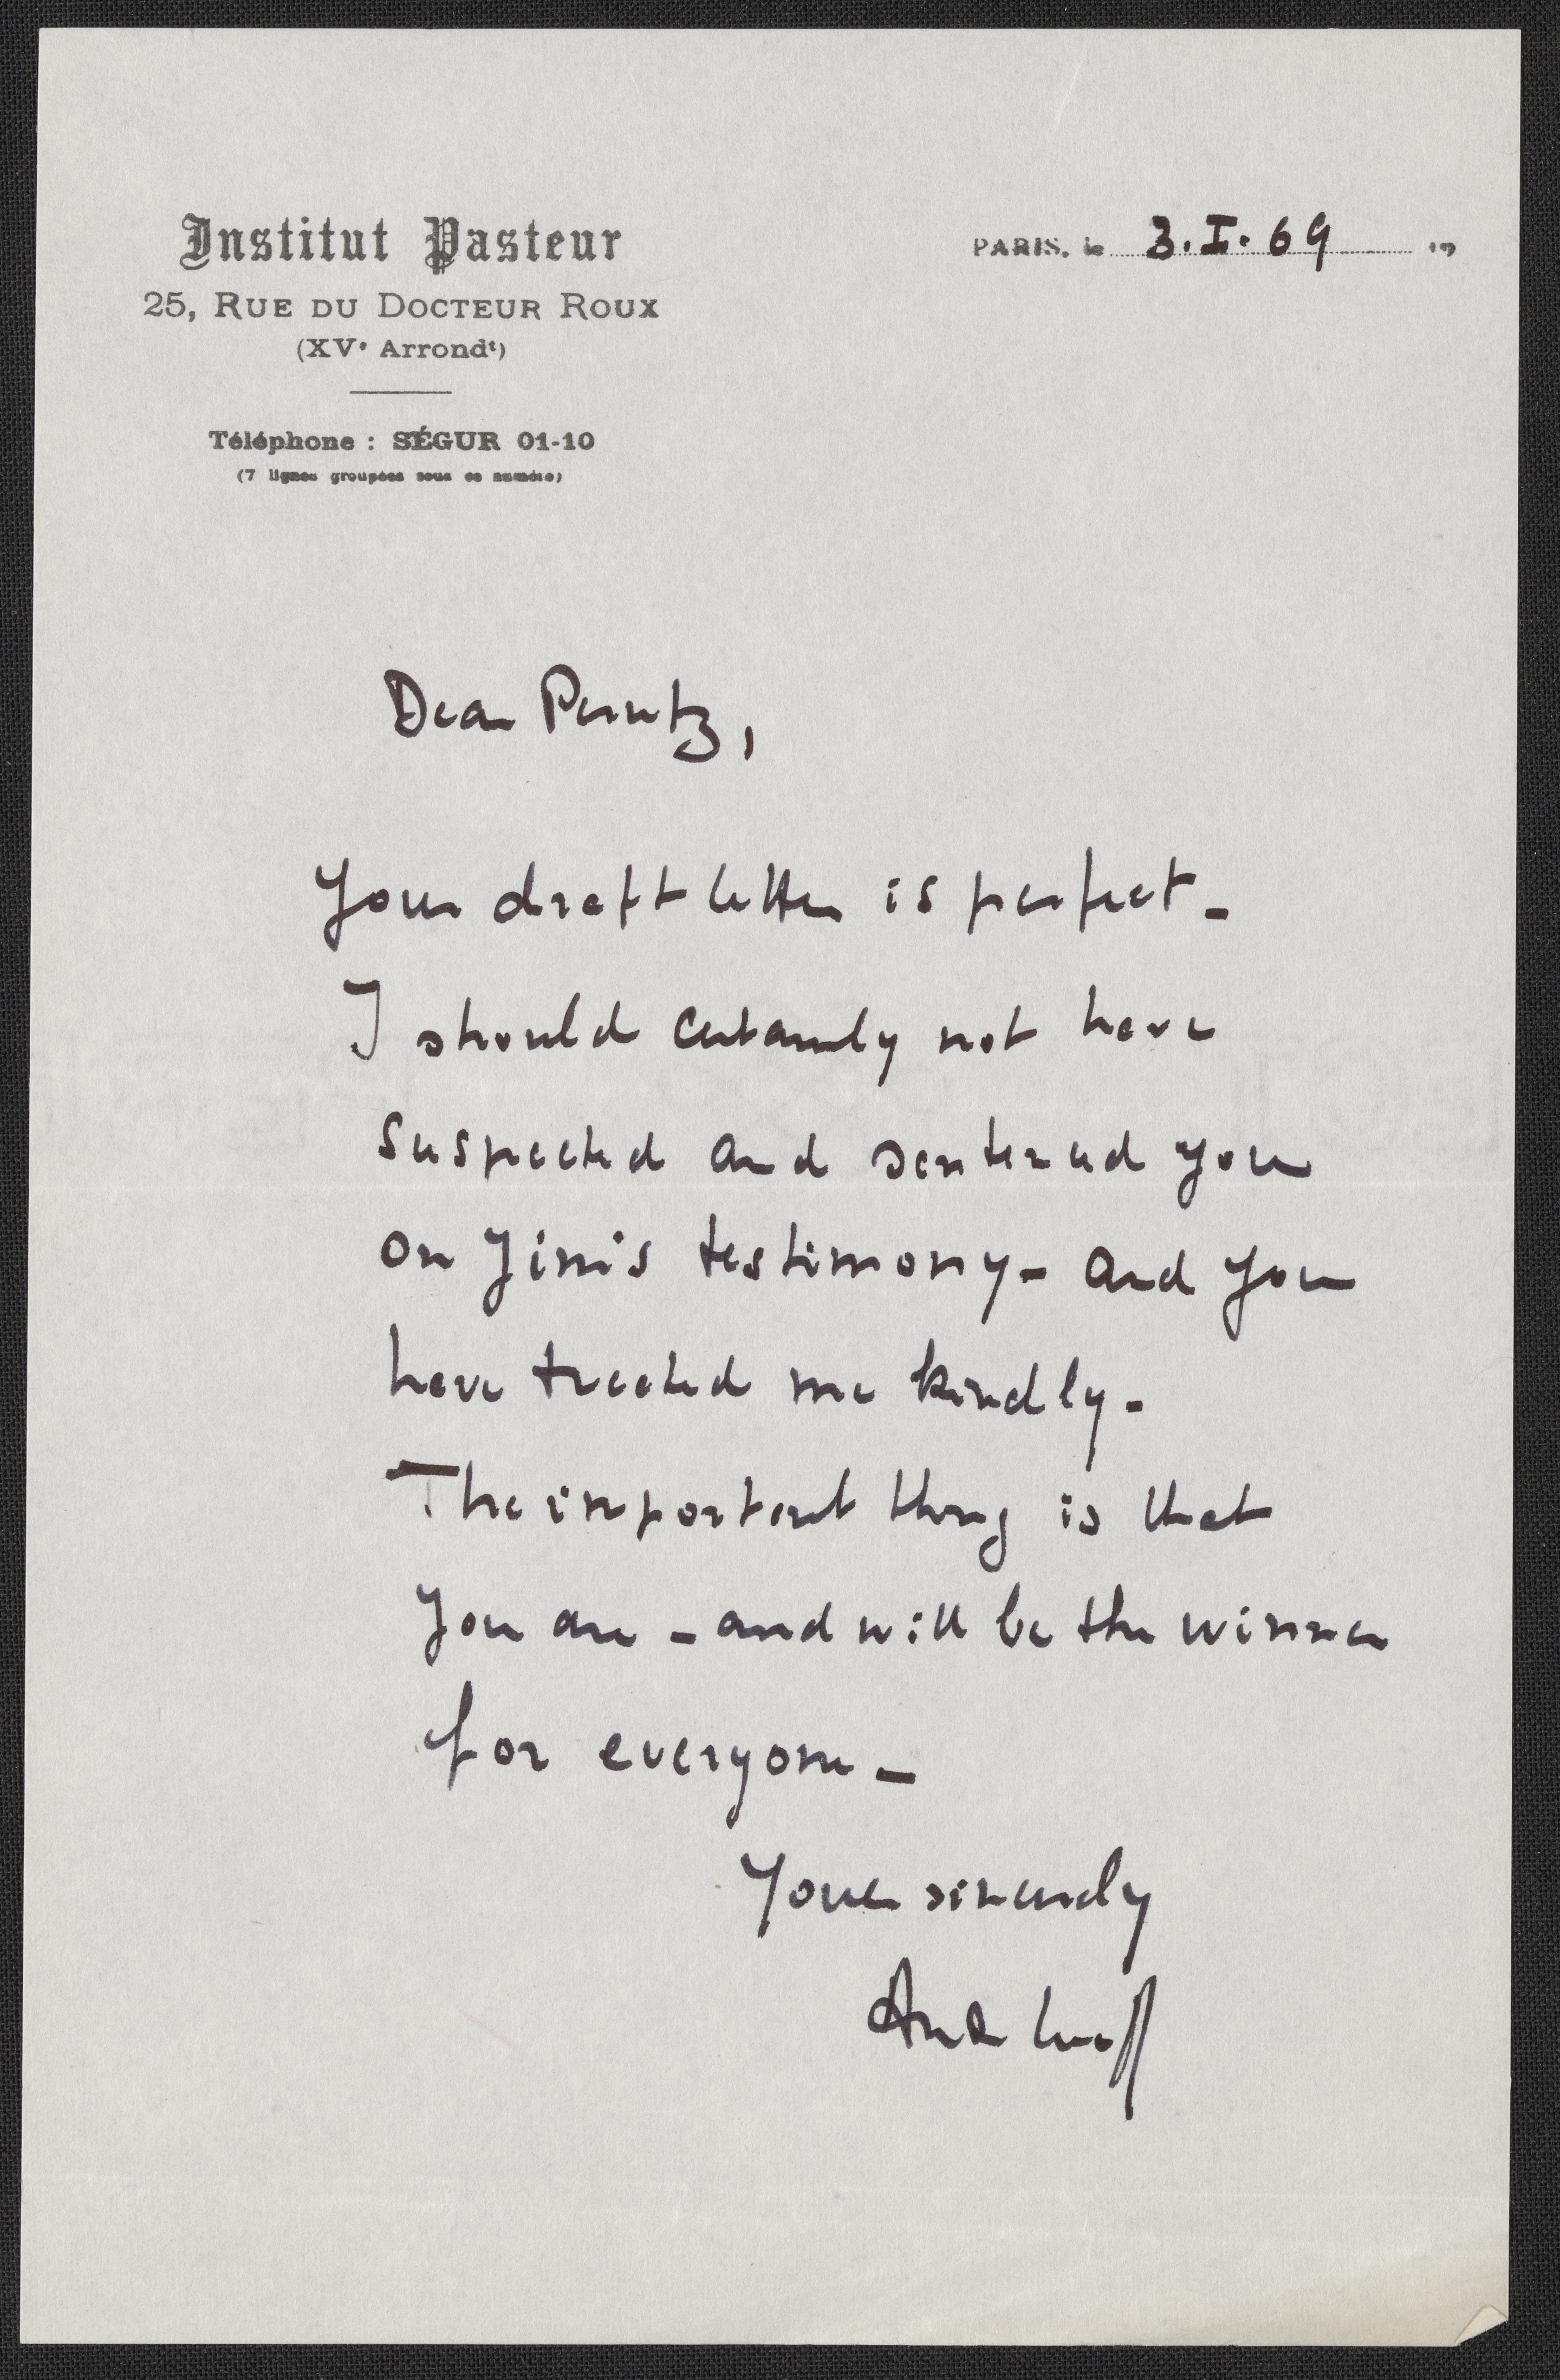 Institut Pasteur
25, RUE DU DOCTEUR ROUX
(XVe Arrondt)
Téléphone : SÉGUR 01-10
(7 lignes groupées sous ce numéro)
PARIS, le 3.I.69 19
Dear Perutz,
Your draft letter is perfect_
I should certainly not have
suspected and sentenced you
on Jim's testimony_ and you
have treated me kindly_
The important thing is that
you are _ and will be the winner
for everyone _
Yours sincerely
André Lwoff